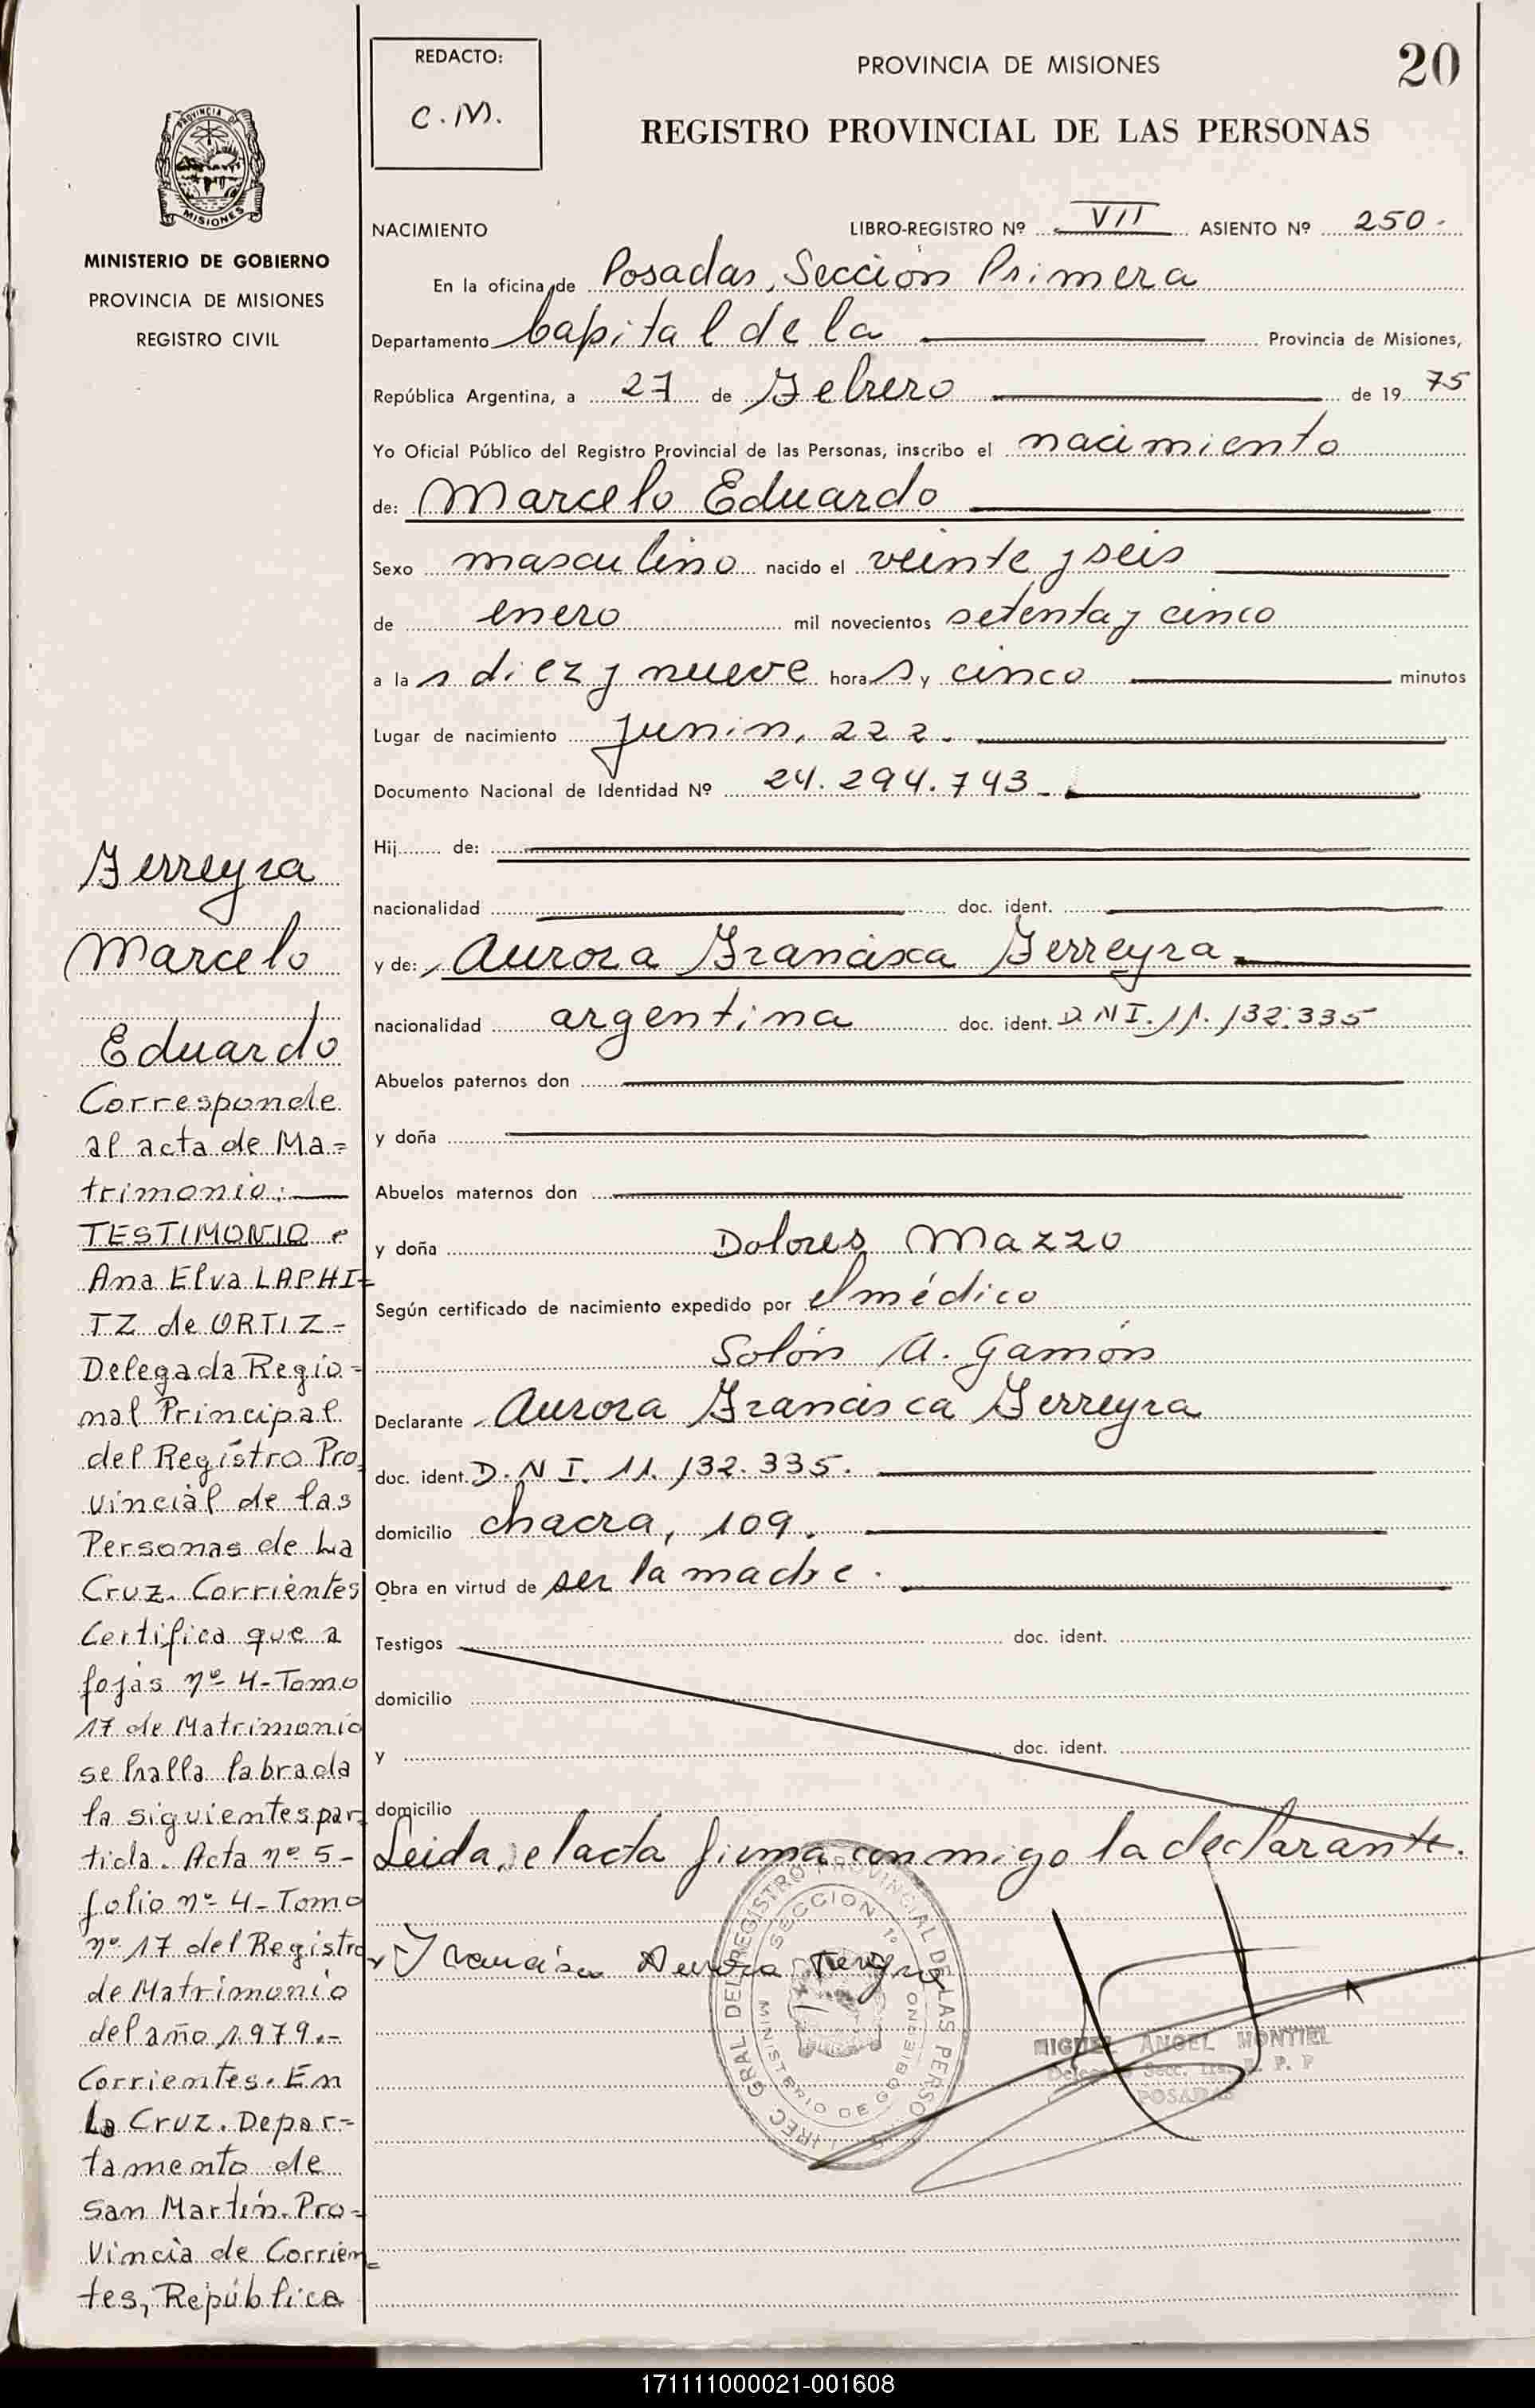 REDACTO:
C.M.
PROVINCIA DE MISIONES
20
REGISTRO PROVINCIAL DE LAS PERSONAS
PROVINCIA D MISIONES
MINISTERIO DE GOBIERNO
PROVINCIA DE MISIONES
REGISTRO CIVIL
NACIMIENTO LIBRO-REGISTRO Nº VII ASIENTO Nº 250-
En la oficina de Posadas, Sección Primera
Departamento Capital de la Provincia de Misiones,
República Argentina, a 27 de Febrero de 1975
Yo Oficial Público del Registro Provincial de las Personas, inscribo el nacimiento
de: Marcelo Eduardo
Sexo masculino nacido el veinte y seis
de enero mil novecientos setenta y cinco
a las diez y nueve horas y cinco minutos
Lugar de nacimiento Junin, 222.
Documento Nacional de Identidad Nº 24.294.743.
Hij de:
nacionalidad doc. ident.
y de: Aurora Francisca Ferreyra
nacionalidad argentina doc. ident. D.N.I. 11.132.335
Abuelos paternos don
y doña
Abuelos maternos don
y doña Dolores Mazzo
Según certificado de nacimiento expedido por el médico
Solón A. Gamón
Declarante Aurora Francisca Ferreyra
doc. ident. D.N.I. 11.132.335.
domicilio chacra, 109.
Obra en virtud de ser la madre.
Testigos doc. ident.
domicilio
y doc. ident.
domicilio
Leida, el acta firma conmigo la declarante.
Francisca Aurora
DIREC. GRAL DEL REGISTRO PROVINCIAL DE LAS PERSO
SECCION 1º
MINISTERIO DE GOBIE
MIGUEL ANGEL MONTIEL
POSADAS
Ferreyra
Marcelo
Eduardo
Corresponde
al acta de Ma=
trimonio:
TESTIMONIO
Ana Elva LAPHI=
TZ de ORTIZ-
Delegada Regio=
nal Principal
del Registro Pro
vincial de las
Personas de La
Cruz. Corrientes
Certifica que a
fojas nº 4-Tomo
17 de Matrimonio
se halla labrada
la siguientes par
tida. Acta nº 5-
folio nº 4-Tomo
nº 17 del Registro
de Matrimonio
del año 1.979.-
Corrientes. En
La Cruz. Depar-
tamento de
San Martín. Pro=
vincia de Corrien=
tes, República
171111000021-001608